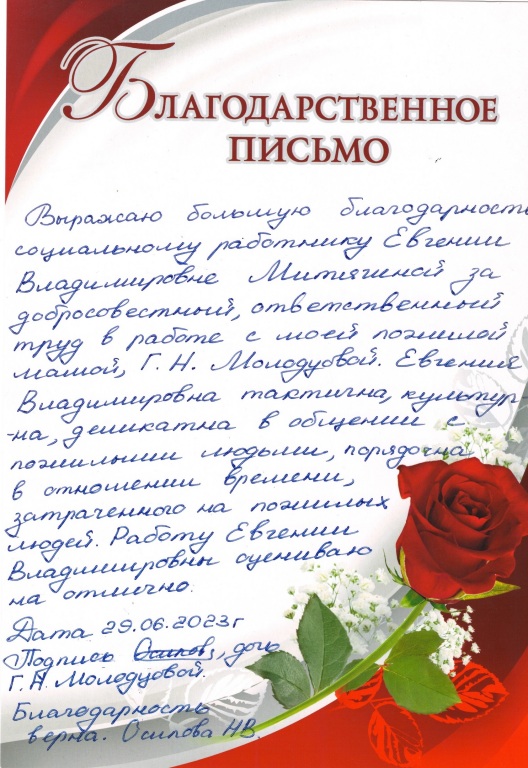 БЛАГОДАРСТВЕННОЕ
ПИСЬМО
Выражаю большую благодарность
социальному работнику Евгении
Владимировне Митягиной за
добросовестный, ответственный
труд в работе с моей пожилой
мамой, Г. Н. Молодцовой. Евгения
Владимировна тактична, культур
-на, деликатна в общении с
пожилыми людьми, порядочна
в отношении времени,
затраченного на пожилых
людей. Работу Евгении
Владимировны оцениваю
на отлично.
Дата 29.06.2023г
Подпись Осипова, дочь
Г. Н. Молодцовой.
Благодарность
верна. Осипова Н.В.